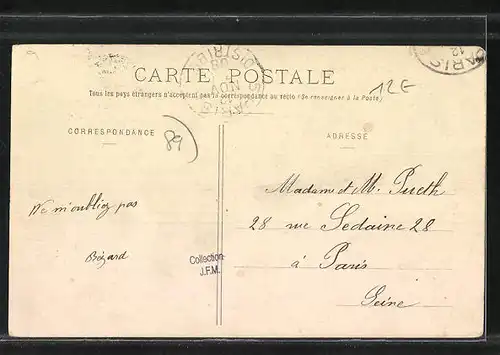 CARTE POSTALE
Tous les pays étrangers n'acceptent pas la correspondance au recto (Se renseigner à la Poste)
12E
CORRESPONDANCE
89
ADRESSE
Ne m'oubliez pas
Bézard
Collection
J.F.M.
Madame et M. Pueth
28 rue Sedaine 28
à Paris
Seine
PARIS
12